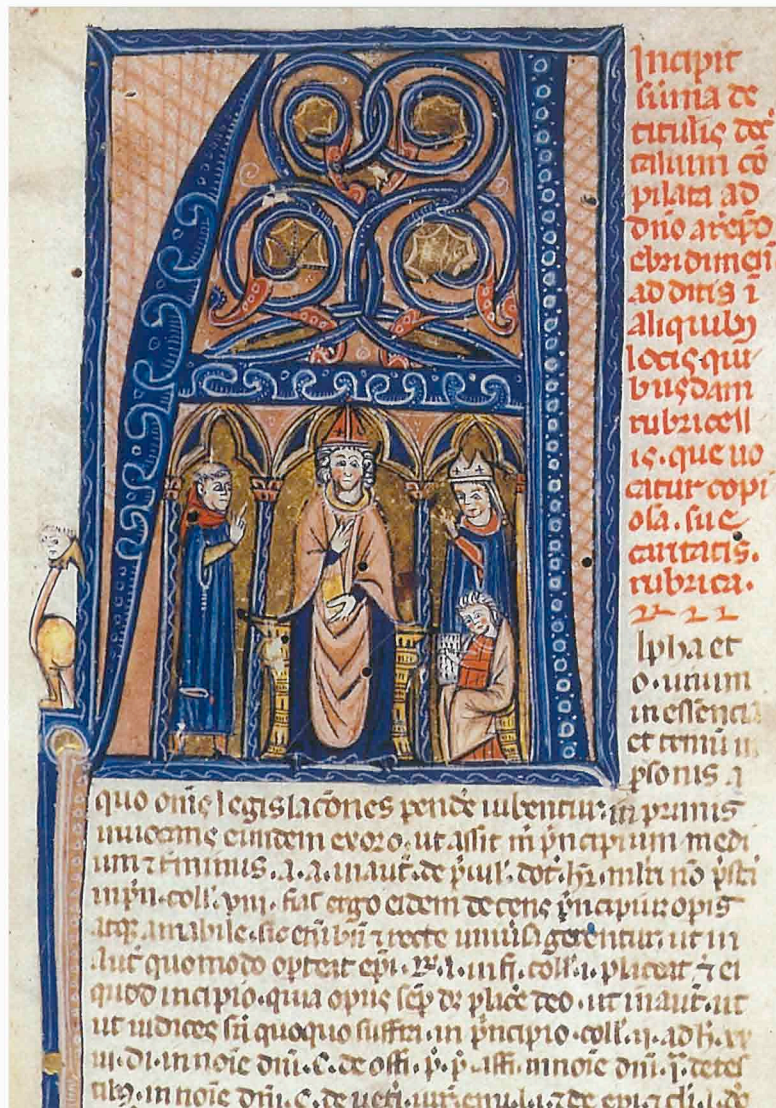 Incipit
sūma de
titulis dec̄
talium cō
pilata ad
dn̄o arep̄o
ebridunen̄
additis ī
aliquib;
locis qui
busdam
rubricell
is. que uo
catur copi
osa. siue
caritatis.
rubrica.
Alpha et
o. unum
in essencia
et trinū in
p̄sonis a
quo om̄s legislac̄ones pendē iubentur in primis
ei⁹dem exoro. ut assit in p̄ncipium medi
um ⁊ t̄minus. a. a. in aut̄. de
coll. viii. fiat ergo eidem decens p̄ncipiū opis
atq; amabile. sic ⁊ recte gerentur ut in
aut̄ quomodo oporteat ep̄i. in fi. coll. i. placeat ⁊ ei
quod incipio. quia opus sēp dꝫ placē deo. ut in aut̄. ut
ut iudices sn̄ quoquo suffra. in p̄ncipio. coll. ii. ad h̄. xx
iii. di. in noīe dn̄i. C. de offi. p̄. p̄. affr. in noīe dn̄i.
in noīe dn̄i. C. de ueti. iur̄. enu. l. i. ⁊ de epi. ⁊ cl̄i. l.